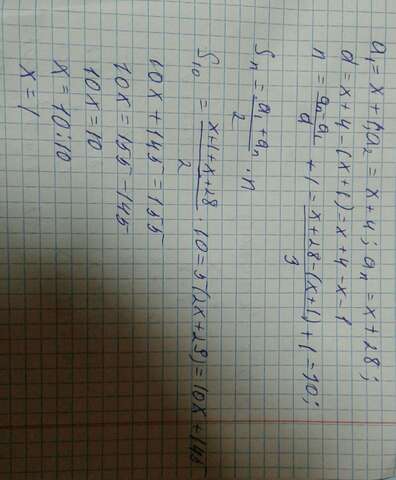 a₁ = x + 1; a₂ = x + 4; aₙ = x + 28;
d = x + 4 - (x + 1) = x + 4 - x - 1
n = (aₙ - a₁)/d + 1 = (x + 28 - (x + 1))/3 + 1 = 10;
Sₙ = (a₁ + aₙ)/2 · n
S₁₀ = (x + 1 + x + 28)/2 · 10 = 5(2x + 29) = 10x + 145
10x + 145 = 155
10x = 155 - 145
10x = 10
x = 10:10
x = 1